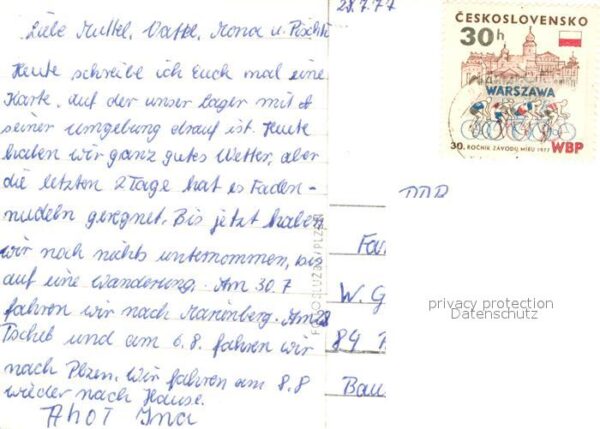 Liebe Mutti, Vatti, Mona u. Pischti
Heute schreibe ich Euch mal eine
Karte, auf der unser Lager mit
seiner Umgebung drauf ist. Heute
haben wir ganz gutes Wetter, aber
die letzten 2 Tage hat es Faden-
nudeln geregnet. Bis jetzt haben
wir noch nichts unternommen, bis
auf eine Wanderung. Am 30.7
fahren wir nach Marienberg. Am 28
Tscheb und am 6.8. fahren wir
nach Plzen. Wir fahren am 8.8
wieder nach Hause.
Ahoi Ina
28.7.77
ČESKOSLOVENSKO
30h
WARSZAWA
30. ROČNÍK ZÁVODU MÍRU 1977 WBP
DDR
Fa
W. G
84
Bau
privacy protection
Datenschutz